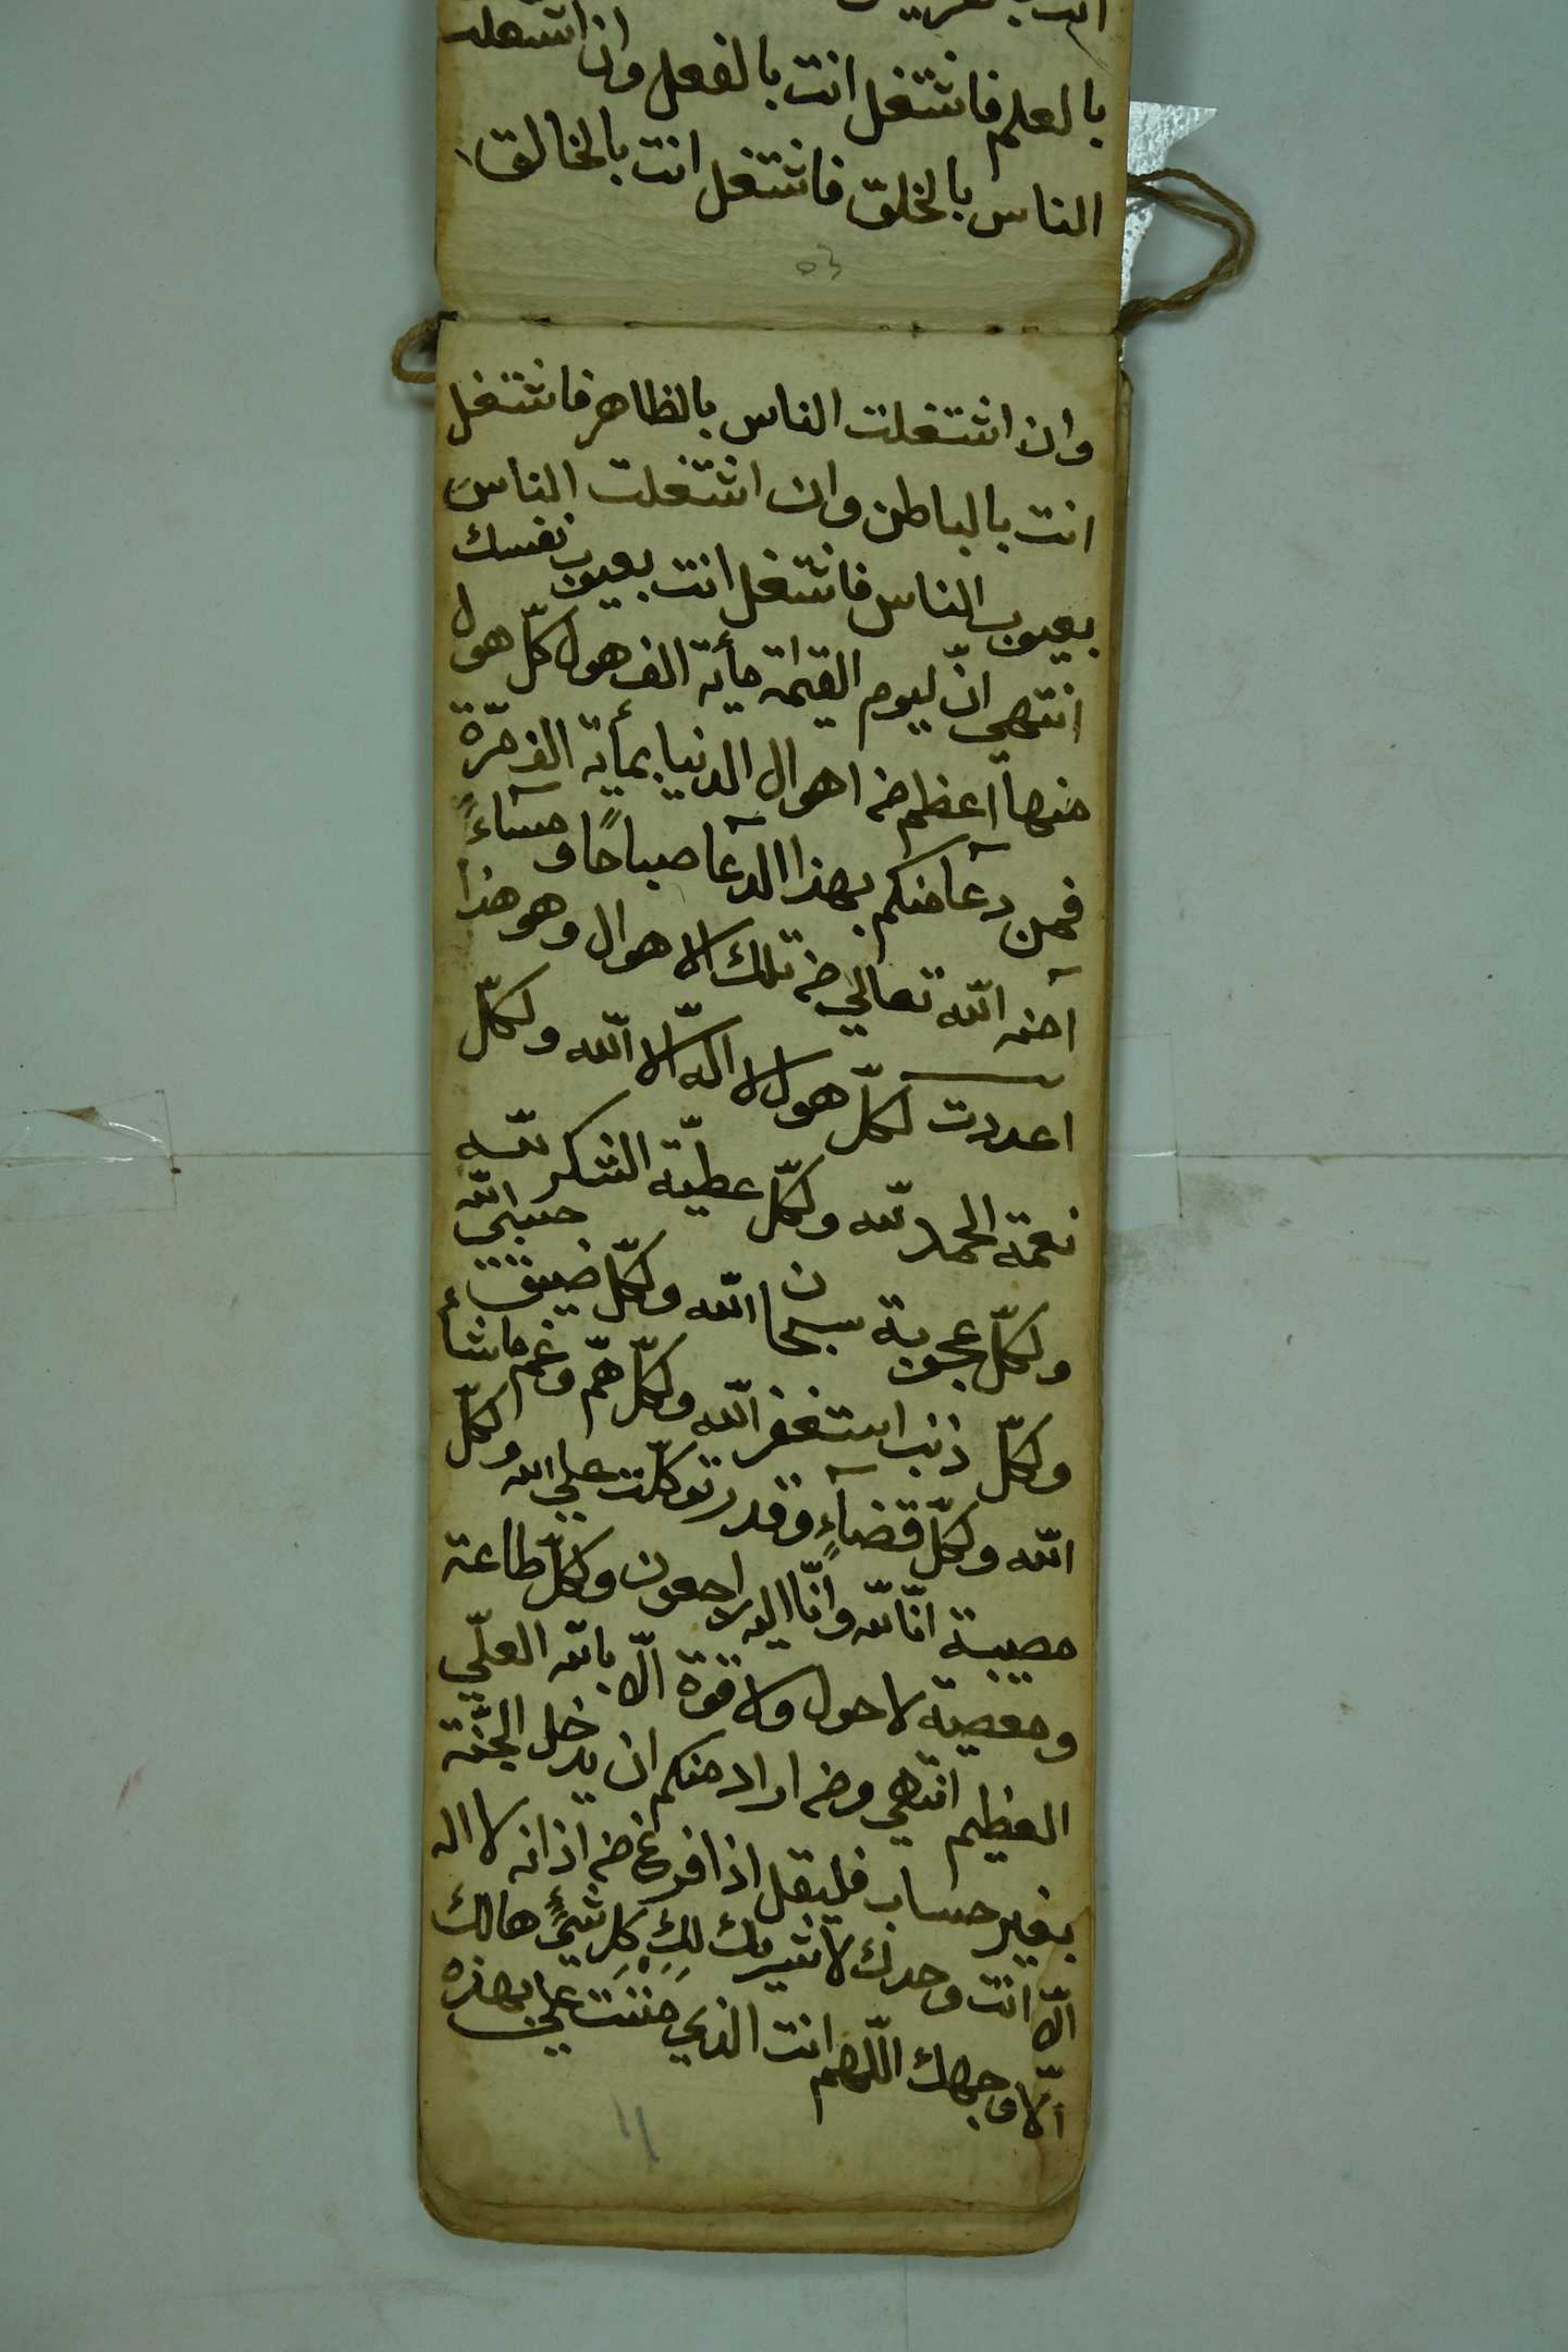 بالعلم فاشتغل انت بالفعل وان اشتغلت
الناس بالخلق فاشتغل انت بالخالق
وان اشتغلت الناس بالظاهر فاشتغل
انت بالباطن وان اشتغلت الناس
بعيوب الناس فاشتغل انت بعيوب نفسك
انتهي انّ ليوم القيٰمة مأية الف هول كلّ هول
منها اعظم من اهوال الدنيا بمأية الف مرّة
فمن دعا منكم بهذا الدعآ صباحًا ومسآءً
آمنه اللّه تعالي من تلك الاهوال وهو هذا
اعددت لكلّ هول لا الٰه الّا اللّه ولكلّ
نعمة الحمد للّه ولكلّ عطيّة الشكر للّه
ولكلّ عجوبة سبحان اللّه ولكلّ ضيق حسبي اللّه
ولكلّ ذنب استغفر اللّه ولكلّ همّ وغم ماشأ
اللّه ولكلّ قضآءٍ وقدر توكلّت علي اللّه ولكلّ
مصيبة انّا للّه وانّا اليه راجعون ولكلّ طاعة
ومعصية لا حول ولا قوّة الّا باللّه العلّي
العظيم انتهي ومن اراد منكم ان يدخل الجنّة
بغير حساب فليقل اذا فرغ من اذانه لا اله
الّا انت وحدك لا شريك لك كل شئ هالك
الّا وجهك اللّهم انت الذي مننت علي بهذه
١١